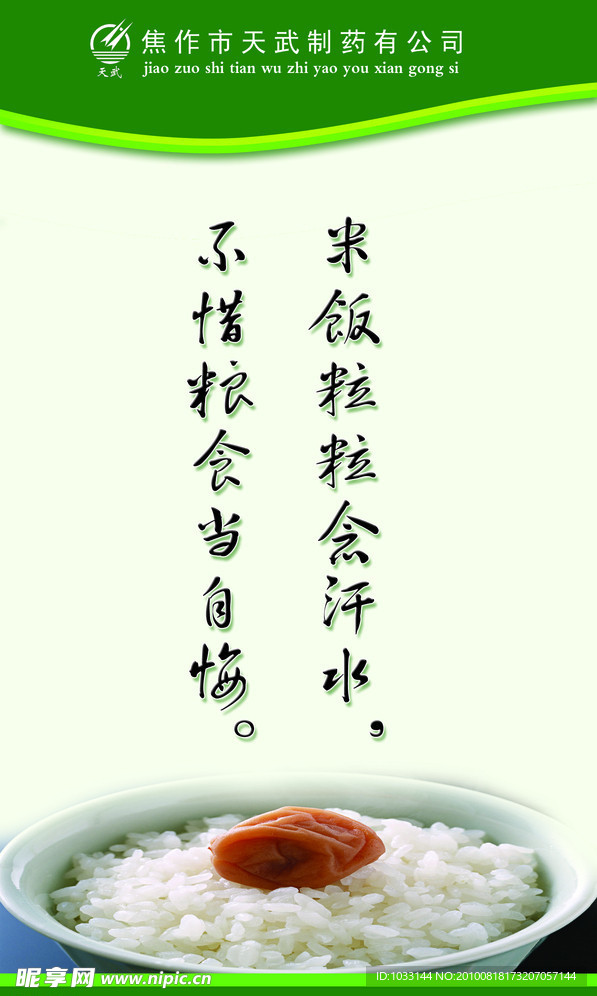 焦作市天武制药有公司
jiao zuo shi tian wu zhi yao you xian gong si
天武
米饭粒粒念汗水，
不惜粮食当自悔。
昵享网 www.nipic.cn
ID:1033144 NO:20100818173207057144